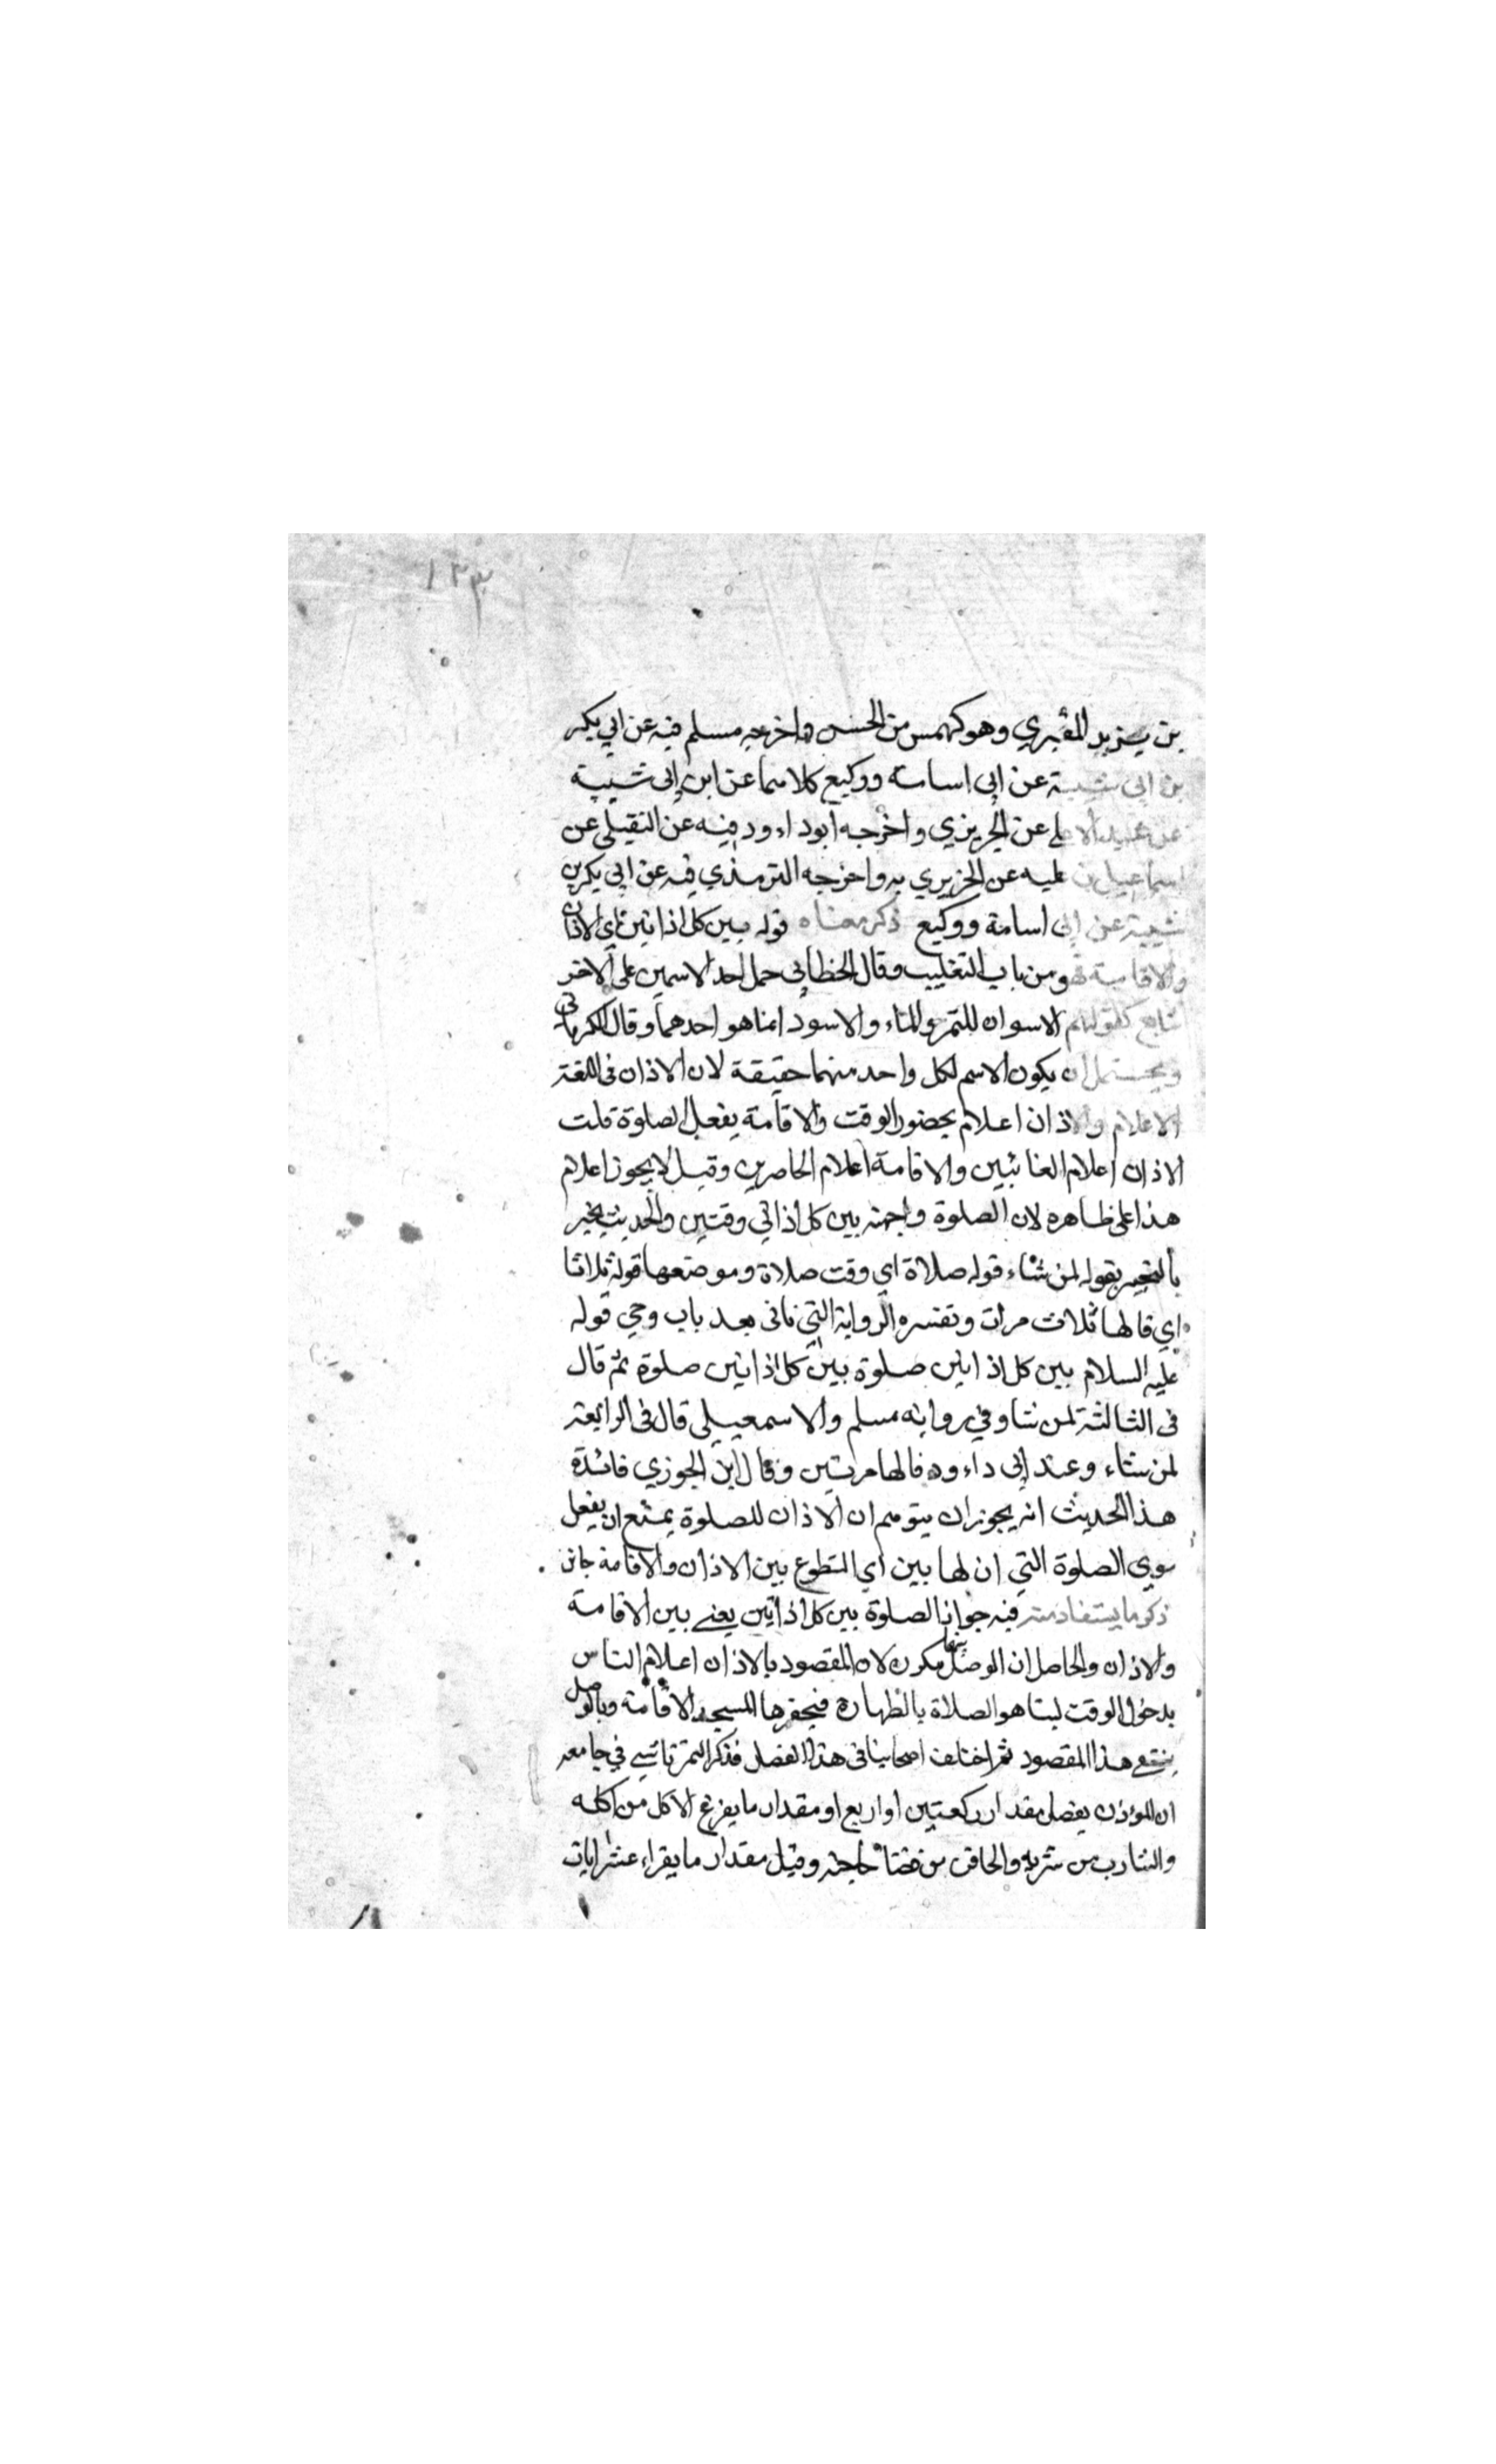 ١٣٣
بن يزيد المقبري وهو كهمس من الحسن واخرجه مسلم فيه عن ابي بكر
بن ابي شيبة عن ابي اسامة ووكيع كلاهما عن ابن ابي شيبة
عن عبد الاعلى عن الجريزي واخرجه ابو داود فيه عن النقيلي عن
اسماعيل بن عليه عن الجزيري به واخرجه الترمذي فيه عن ابي بكر بن
شيبة عن ابي اسامة ووكيع ذكر معناه قوله بين كل اذانين اي الاذان
والاقامة فهو من باب التغليب وقال الخطابي حمل احد الاسمين على الاخر
شايع كقولهم الاسودان للتمر والماء والاسود انما هو احدهما وقال الكرماني
ويحتمل ان يكون الاسم لكل واحد منهما حقيقة لان الاذان في اللغة
الاعلام والاذان اعلام بحضور الوقت والاقامة بفعل الصلوة قلت
الاذان اعلام الغائبين والاقامة اعلام الحاضرين وقيل لا يجوز اعلام
هذا على ظاهره لان الصلوة واجبة بين كل اذاني وقتين والحديث يخير
بالتخيير بقوله لمن شاء قوله صلاة اي وقت صلاة وموضعها قوله ثلاثا
اي قالها ثلاث مرات وتفسره الرواية التي تاتي بعد باب وهي قوله
عليه السلام بين كل اذانين صلوة بين كل اذانين صلوة ثم قال
في الثالثة لمن شا وفي رواية مسلم والاسمعيلي قال في الرابعة
لمن شاء وعند ابي داود قالها مرتين وقال ابن الجوزي فائدة
هذا الحديث انه يجوز ان يتوهم ان الاذان للصلوة يمنع ان يفعل
سوي الصلوة التي ان لها بين اي التطوع بين الاذان والاقامة جائز
ذكر ما يستفاد منه فيه جواز الصلوة بين كل اذانين يعني بين الاقامة
والاذان والحاصل ان الوصل بينهما مكروه لان المقصود بالاذان اعلام الناس
بدخول الوقت ليتاهبو الصلاة بالطهارة فيحضرها المسجد الاقامة وبالوصل
ينتفي هذا المقصود ثم اختلف اصحابنا في هذا الفصل فذكر التمرتاشي في جامعه
ان المؤذن يفصل مقدار ركعتين او اربع او مقدار ما يفرغ الاكل من اكله
والشارب من شربه والحاقن من قضا حاجته وقيل مقدار ما يقراء عشر ايات